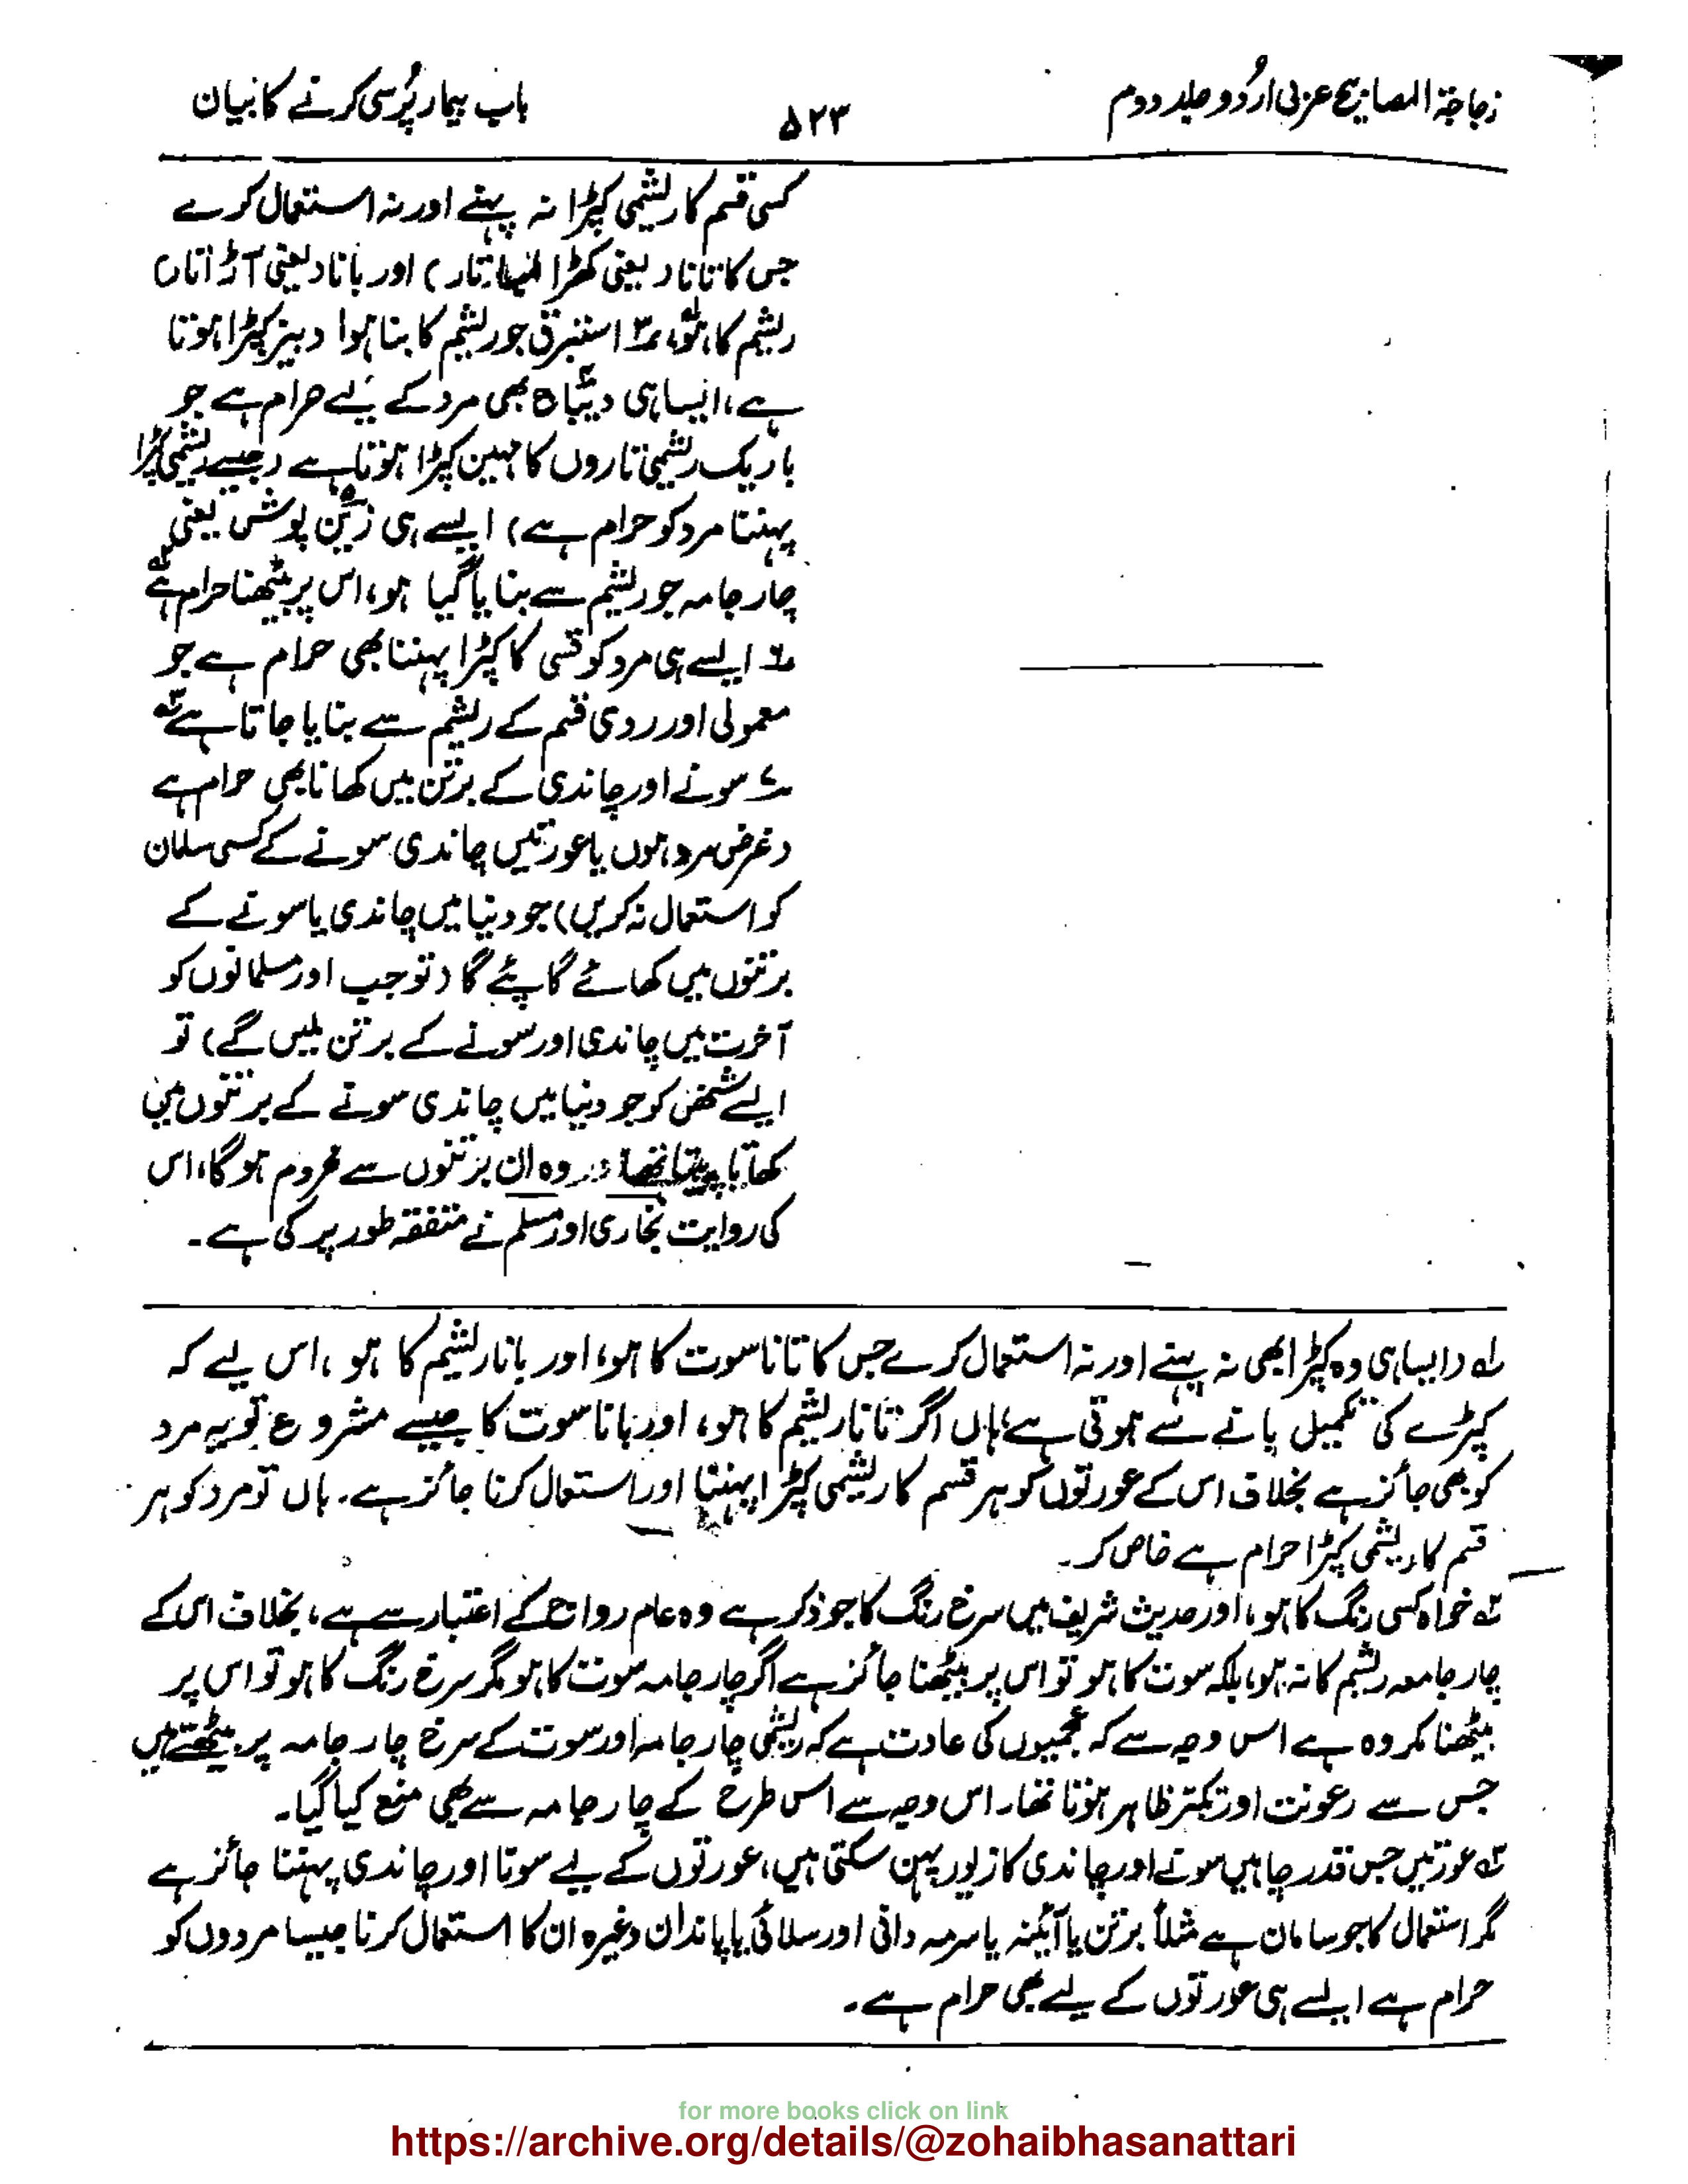 زجاجۃ المصابیح عربی اُردو جلد دوم
۵۲۳
باب بیمار پُرسی کرنے کا بیان
کسی قسم کا ریشمی کپڑا نہ پہنے اور نہ استعمال کرے
جس کا تانا (یعنی کھڑا تار) اور بانا (یعنی آڑا تار)
ریشم کا ہو، ۳ استبرق جو ریشم کا بنا ہوا دبیز کپڑا ہوتا
ہے، ایسا ہی دیباج بھی مرد کے لیے حرام ہے جو
باریک ریشمی تاروں کا مہین کپڑا ہوتا ہے (جیسے ریشمی کپڑا
پہننا مرد کو حرام ہے) ایسے ہی زین پوش یعنی
چار جامہ جو ریشم سے بنایا گیا ہو، اس پر بیٹھنا حرام ہے
۶ ایسے ہی مرد کو قسی کا کپڑا پہننا بھی حرام ہے جو
معمولی اور ردی قسم کے ریشم سے بنایا جاتا ہے
۷ سونے اور چاندی کے برتن میں کھانا بھی حرام ہے
(غرض مرد ہوں یا عورتیں چاندی سونے کے کسی سامان
کو استعمال نہ کریں) جو دنیا میں چاندی یا سونے کے
برتنوں میں کھائے گا پئے گا (تو جب اور مسلمانوں کو
آخرت میں چاندی اور سونے کے برتن ملیں گے) تو
ایسے شخص کو جو دنیا میں چاندی سونے کے برتنوں میں
کھاتا پیتا تھا وہ ان برتنوں سے محروم ہوگا، اس
کی روایت بخاری اور مسلم نے متفقہ طور پر کی ہے۔
لہ (ایسا ہی وہ کپڑا بھی نہ پہنے اور نہ استعمال کرے جس کا تانا سوت کا ہو، اور بانا ریشم کا ہو، اس لیے کہ
کپڑے کی تکمیل بانے سے ہوتی ہے، ہاں اگر تانا ریشم کا ہو، اور بانا سوت کا جیسے مشروع تو یہ مرد
کو بھی جائز ہے بخلاف اس کے عورتوں کو ہر قسم کا ریشمی کپڑا پہننا اور استعمال کرنا جائز ہے۔ ہاں تو مرد کو ہر
قسم کا ریشمی کپڑا حرام ہے خاص کر۔
۲ہ خواہ کسی رنگ کا ہو، اور حدیث شریف میں سرخ رنگ کا جو ذکر ہے وہ عام رواج کے اعتبار سے ہے، بخلاف اس کے
چار جامہ ریشم کا نہ ہو، بلکہ سوت کا ہو تو اس پر بیٹھنا جائز ہے اگر چار جامہ سوت کا ہو مگر سرخ رنگ کا ہو تو اس پر
بیٹھنا مکروہ ہے اس وجہ سے کہ عجمیوں کی عادت ہے کہ ریشمی چار جامہ اور سوت کے سرخ چار جامہ پر بیٹھتے ہیں
جس سے رعونت اور تکبّر ظاہر ہوتا تھا۔ اس وجہ سے اس طرح کے چار جامہ سے بھی منع کیا گیا۔
۳ہ عورتیں جس قدر چاہیں سونے اور چاندی کا زیور پہن سکتی ہیں، عورتوں کے لیے سونا اور چاندی پہننا جائز ہے
مگر استعمال کا جو سامان ہے مثلاً برتن یا آئینہ یا سرمہ دانی اور سلائی یا پاندان وغیرہ ان کا استعمال کرنا جیسا مردوں کو
حرام ہے ایسے ہی عورتوں کے لیے بھی حرام ہے۔
for more books click on link
https://archive.org/details/@zohaibhasanattari